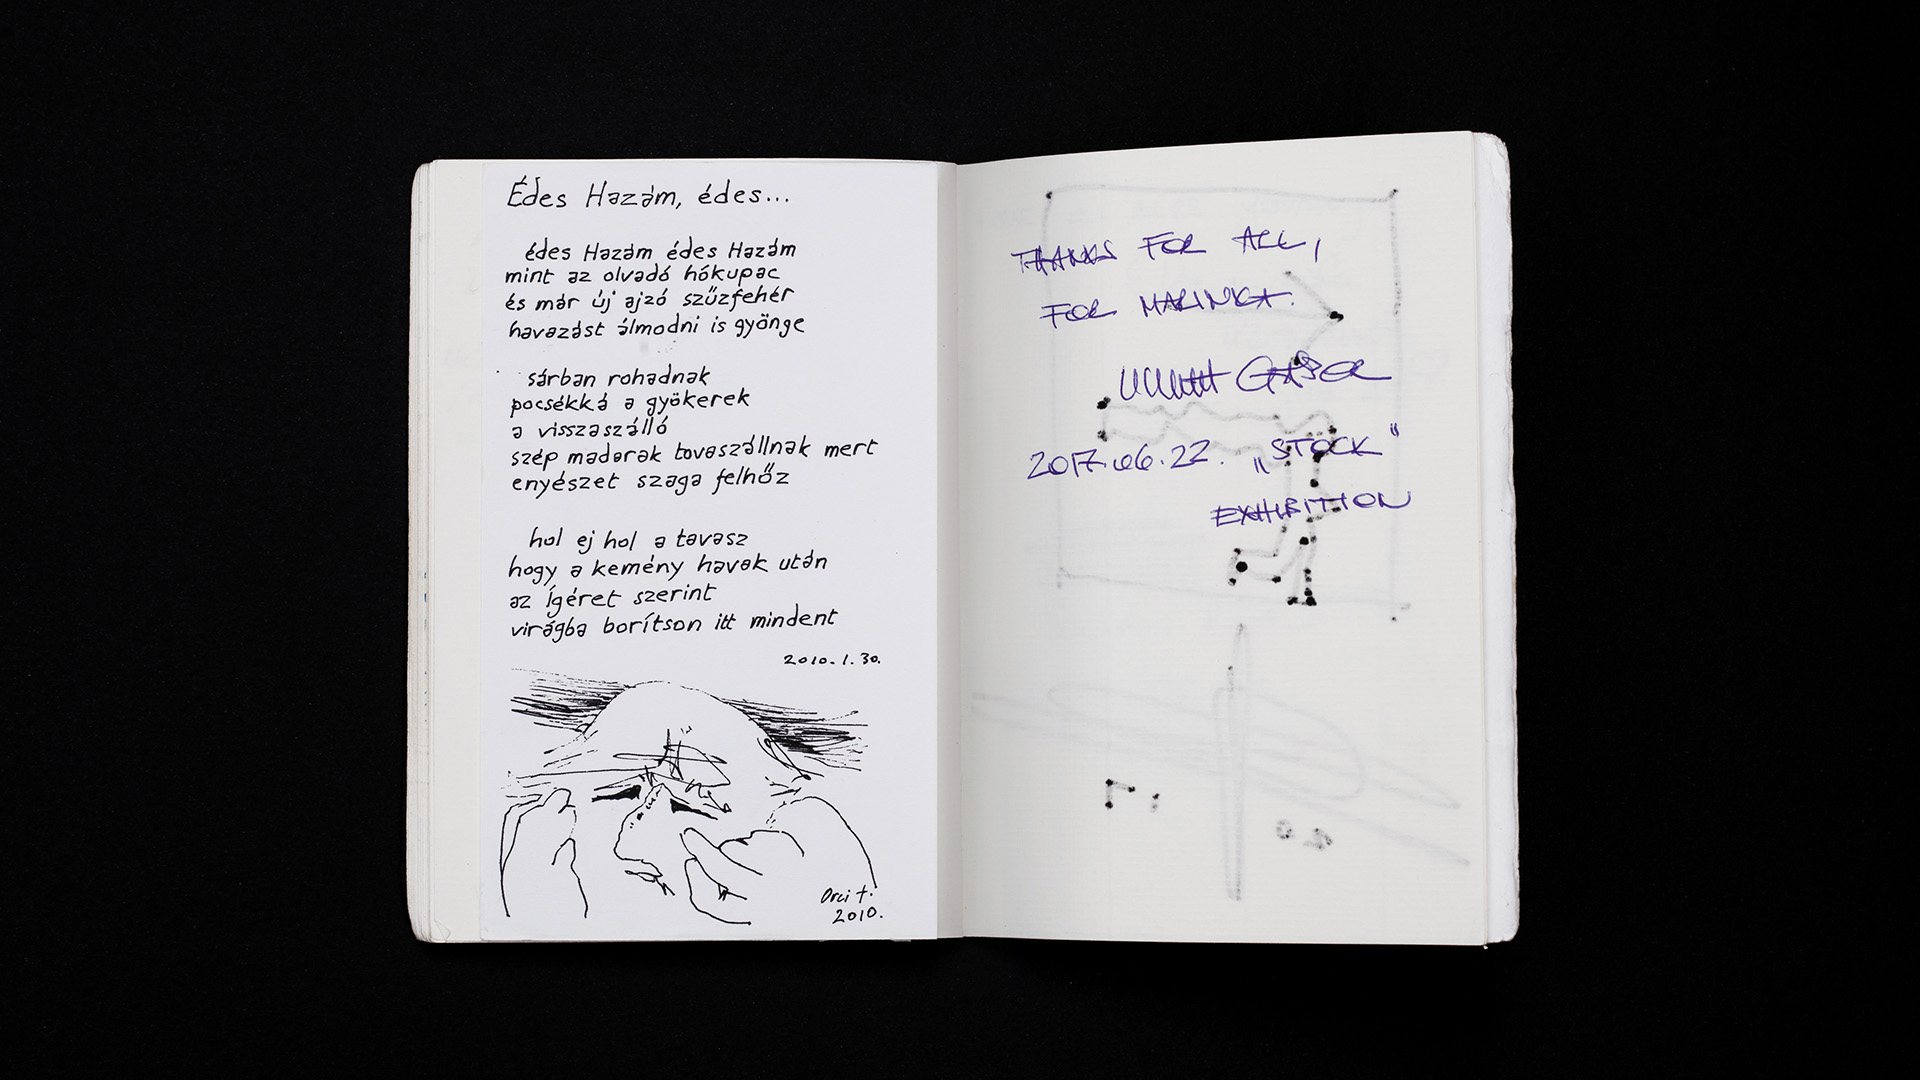 Édes Hazám, édes...
édes Hazám édes Hazám
mint az olvadó hókupac
és már új ajzó szűzfehér
havazást álmodni is gyönge
sárban rohadnak
pocsékká a gyökerek
a visszaszálló
szép madarak tovaszállnak mert
enyészet szaga felhőz
hol ej hol a tavasz
hogy a kemény havak után
az Ígéret szerint
virágba borítson itt mindent
2010.1.30.
Orci t.
2010.
THANKS FOR ALL,
FOR MARINKA.
GÁBOR
2017.06.22. „STOCK"
EXHIBITION